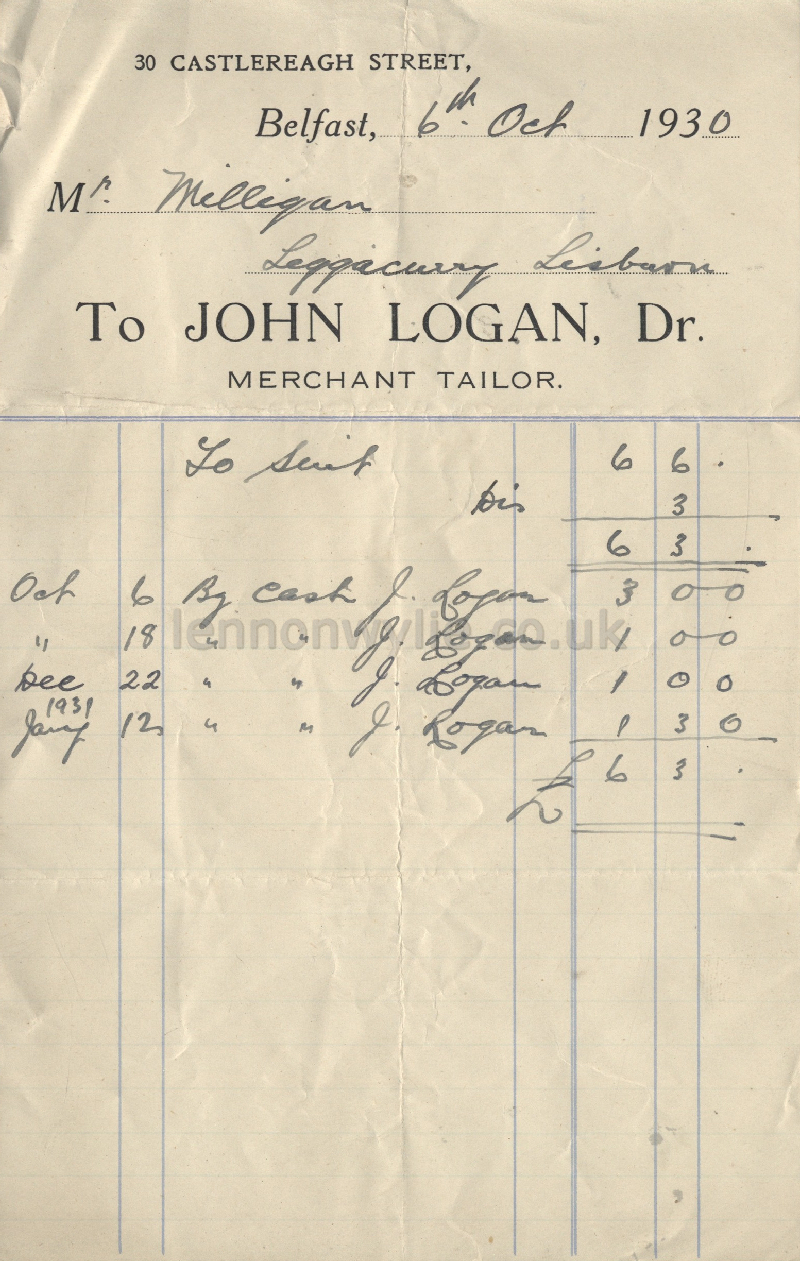 30 CASTLEREAGH STREET,
Belfast, 6th Oct 1930
Mr. Milligan
Leggacurry Lisburn
To JOHN LOGAN, Dr.
MERCHANT TAILOR.
To Suit 6 6 .
Dis 3
6 3 .
Oct 6 By Cash J. Logan 3 0 0
" 18 " " J. Logan 1 0 0
Dec 22 " " J. Logan 1 0 0
1931
Jany 12 " " J. Logan 1 3 0
£ 6 3 .
lennonwylie.co.uk